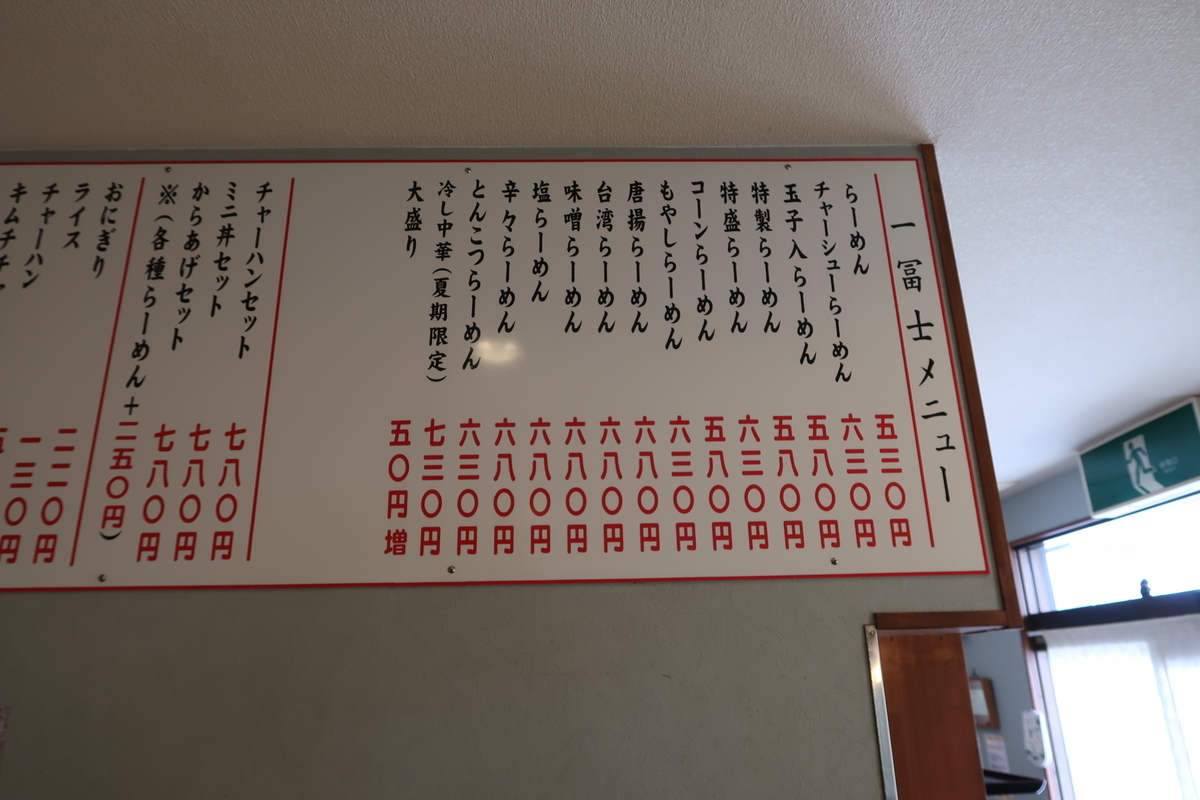 一冨士メニュー
らーめん 五三〇円
チャーシューらーめん 六三〇円
玉子入らーめん 五八〇円
特製らーめん 五八〇円
特盛らーめん 六三〇円
コーンらーめん 五八〇円
もやしらーめん 六三〇円
唐揚らーめん 六八〇円
台湾らーめん 六八〇円
味噌らーめん 六八〇円
塩らーめん 六八〇円
辛々らーめん 六八〇円
とんこつらーめん 六三〇円
冷し中華（夏期限定） 七三〇円
大盛り 五〇円増
チャーハンセット 七八〇円
ミニ丼セット 七八〇円
からあげセット 七八〇円
※（各種らーめん＋二五〇円）
おにぎり 二二〇円
ライス 一三〇円
チャーハン
キムチチ